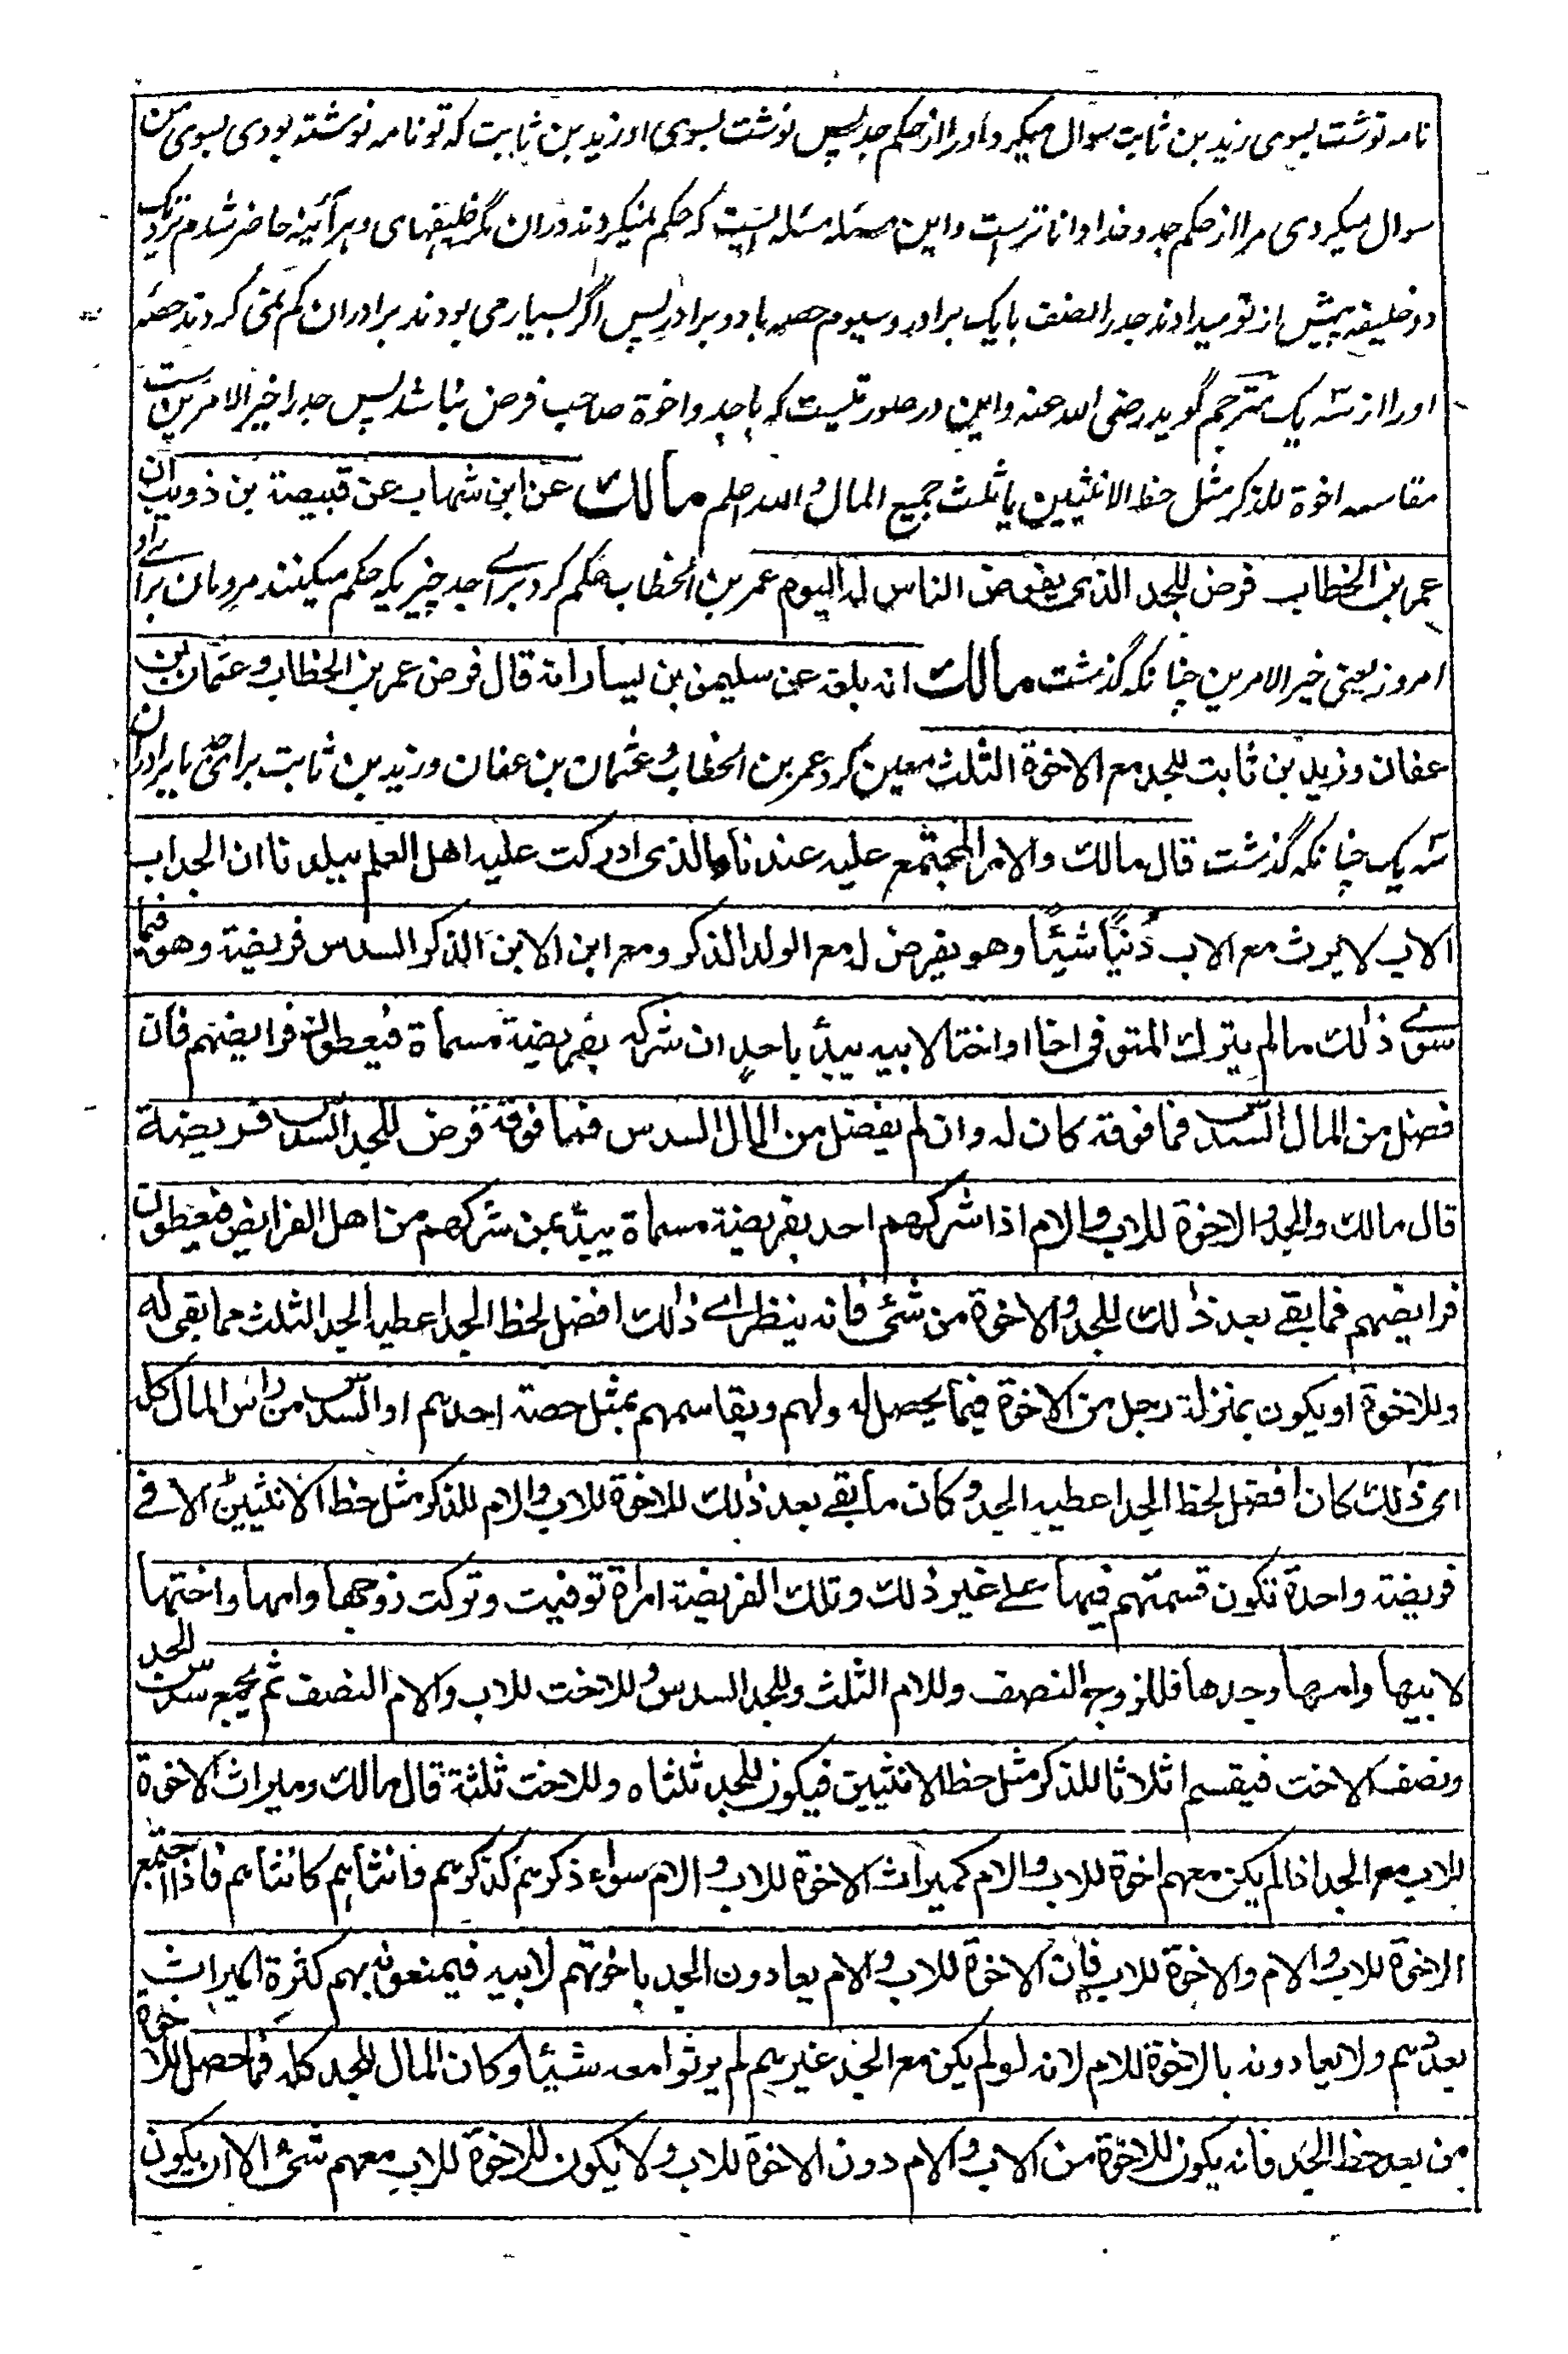 نامه نوشت بسوی زید بن ثابت سوال میکرد اورا از حکم جد پس نوشت بسوی او زید بن ثابت که تو نامه نوشته بودی بسوی من
سوال میکردی مرا از حکم جد و خدا داناترست و این مسئله مسئله ایست که حکم نمیکردند دران مگر خلیفهای و هر آئینه حاضر شدم نزدیک
دو خلیفه پیش از تو میدادند جد را نصف با یک برادر و سیوم حصه با دو برادر پس اگر بسیار می بودند برادران کم نمی کردند حصهٔ
اورا از سه یک مترجم گوید رضی الله عنه و این در صورتیست که با جد و اخوة صاحب فرض نباشد پس جد را خیر الامرین ست
مقاسمه اخوة للذکر مثل حظ الانثیین یا ثلث جمیع المال والله اعلم مالك عن ابن شهاب عن قبیصة بن ذویب ان
عمر بن الخطاب فرض للجد الذی یفرض الناس له الیوم عمر بن الخطاب حکم کرد برائے جد چیزیکه حکم میکنند مردمان برائے او
امروز یعنی خیر الامرین چنانکه گذشت مالك انه بلغه عن سلیمن بن یسار انه قال فرض عمر بن الخطاب وعثمان بن
عفان وزید بن ثابت للجد مع الاخوة الثلث معین کرد عمر بن الخطاب و عثمان بن عفان و زید بن ثابت برای جد با برادران
سه یک چنانکه گذشت قال مالك والامر المجتمع علیه عندنا والذی ادركت علیه اهل العلم ببلدنا ان الجد اب
الاب لا یرث مع الاب دُنیًا شیئًا وهو یفرض له مع الولد الذكر ومع ابن الابن الذكر السدس فریضة وهو فیما
سوے ذٰلك ما لم یترك المتوفی اخا او اختا لابیه یبدّأ باحدٍ ان شركه بفریضة مسماة فیعطون فرایضهم فان
فضل من المال السدس فما فوقه كان له وان لم یفضل من المال السدس فما فوقه فرض للجد السدس فریضة
قال مالك والجد والاخوة للاب والام اذا شركهم احد بفریضة مسماة یبدّأ بمن شركهم من اهل الفرایض فیعطون
فرایضهم فما بقے بعد ذٰلك للجد والاخوة من شئی فانه ینظر اے ذٰلك افضل لحظ الجد اعطیه الجد الثلث مما بقی له
وللاخوة او یكون بمنزلة رجل من الاخوة فیما یحصل له ولهم ویقاسمهم بمثل حصة احدهم او السدس من راس المال كله
ای ذٰلك كان افضل لحظ الجد اعطیه الجد وكان ما بقے بعد ذٰلك للاخوة للاب والام للذكر مثل حظ الانثیین الا فے
فریضة واحدة تكون قسمتهم فیها علے غیر ذٰلك وتلك الفریضة امراة توفیت وتركت زوجها وامها واختها
لابیها وامها وجدها فللزوج النصف وللام الثلث وللجد السدس وللاخت للاب والام النصف ثم یجمع سدس الجد
ونصف الاخت فیقسم اثلاثا للذكر مثل حظ الانثیین فیكون للجد ثلثاه وللاخت ثلثة قال مالك ومیراث الاخوة
للاب مع الجد اذا لم یكن معهم اخوة للاب والام كمیراث الاخوة للاب والام سواء ذكرهم كذكرهم فانثاهم كانثاهم فاذا اجتمع
الاخوة للاب والام والاخوة للاب فان الاخوة للاب والام یعادون الجد باخوتهم لابیه فیمنعونه بهم كثرة المیراث
بعددهم ولا یعادونه بالاخوة للام لانه لو لم یكن مع الجد غیرهم لم یرثوا معه شیئا وكان المال للجد كله فما حصل للاخوة
من بعد حظ الجد فانه یكون للاخوة من الاب والام دون الاخوة للاب ولا یكون للاخوة للاب معهم شئی الا ان یكون